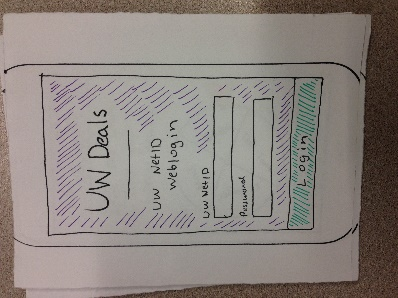 UW Deals
UW NetID
weblogin
UW NetID
Password
Login